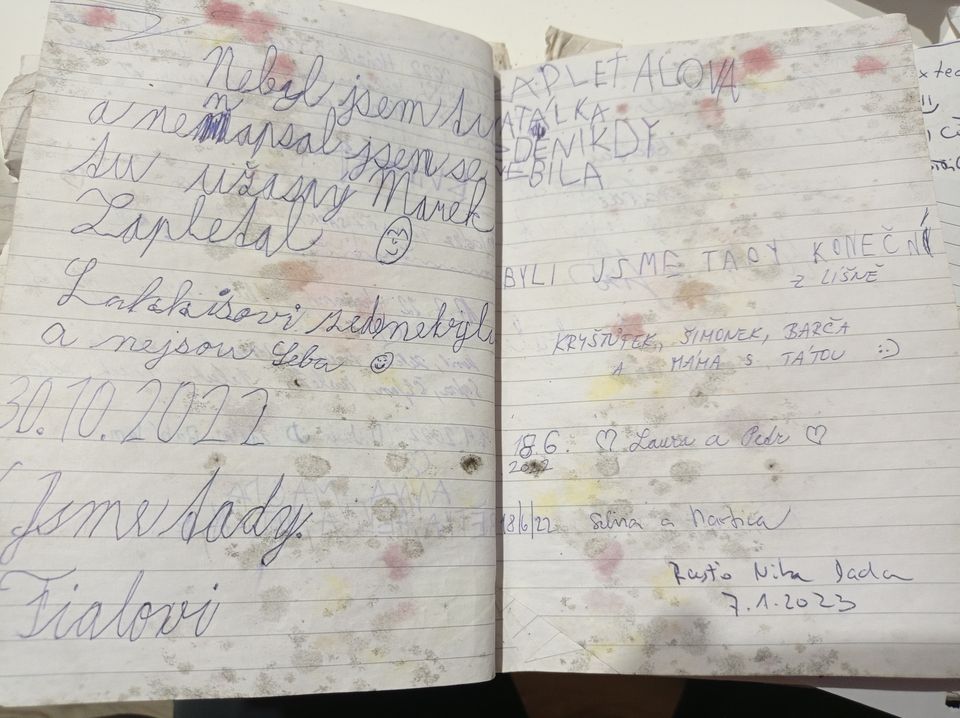 Nebyl jsem tu
a nenapsal jsem se
tu užasny Marek
Zapletal
zde nebyli
a nejsou Seba
30.10.2022
Jsme tady.
Fialovi
ZAPLETALOVA
NATÁLKA
ZDE NIKDY
NEBILA
BYLI JSME TADY KONEČNÍ
Z LÍŠNĚ
KRYŠTŮFEK, ŠIMONEK, BARČA
A MÁMA S TÁTOU :)
18.6. ♡ Laura a Petr ♡
2022
18/6/22 a
Rasťo Nika
7.1.2023